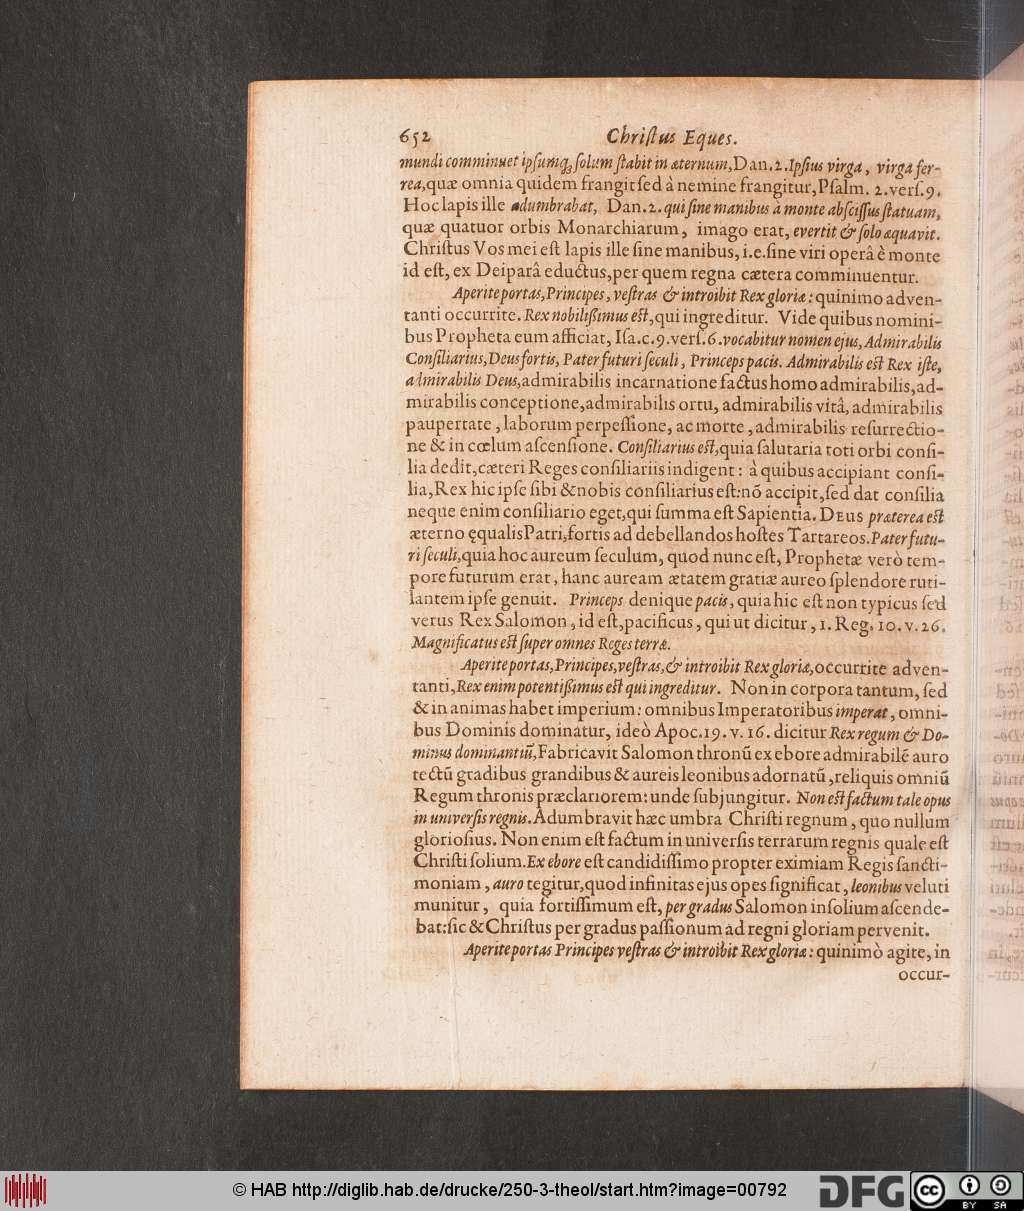 652 Chriſtus Eques.
mundi comminuet ipſumq́; ſolum ſtabit in æternum, Dan. 2. Ipſius virga, virga fer-
rea, quæ omnia quidem frangit ſed à nemine frangitur, Pſalm. 2. verſ. 9.
Hoc lapis ille adumbrabat, Dan. 2. qui ſine manibus à monte abſciſſus ſtatuam,
quæ quatuor orbis Monarchiarum, imago erat, evertit & ſolo æquavit.
Chriſtus Vos mei eſt lapis ille ſine manibus, i.e. ſine viri operâ è monte
id eſt, ex Deiparâ eductus, per quem regna cætera comminuentur.
Aperite portas, Principes, veſtras & introibit Rex gloriæ: quinimo adven-
tanti occurrite. Rex nobilißimus eſt, qui ingreditur. Vide quibus nomini-
bus Propheta eum afficiat, Iſa. c. 9. verſ. 6. vocabitur nomen ejus, Admirabilis
Conſiliarius, Deus fortis, Pater futuri ſeculi, Princeps pacis. Admirabilis eſt Rex iſte,
admirabilis Deus, admirabilis incarnatione factus homo admirabilis, ad-
mirabilis conceptione, admirabilis ortu, admirabilis vitâ, admirabilis
paupertate, laborum perpeſſione, ac morte, admirabilis reſurrectio-
ne & in cœlum aſcenſione. Conſiliarius eſt, quia ſalutaria toti orbi conſi-
lia dedit, cæteri Reges conſiliariis indigent: à quibus accipiant conſi-
lia, Rex hic ipſe ſibi & nobis conſiliarius eſt: nõ accipit, ſed dat conſilia
neque enim conſiliario eget, qui ſumma eſt Sapientia. DEUS præterea eſt
æterno ęqualis Patri, fortis ad debellandos hoſtes Tartareos. Pater futu-
ri ſeculi, quia hoc aureum ſeculum, quod nunc eſt, Prophetæ verò tem-
pore futurum erat, hanc auream ætatem gratiæ aureo ſplendore ruti-
lantem ipſe genuit. Princeps denique pacis, quia hic eſt non typicus ſed
verus Rex Salomon, id eſt, pacificus, qui ut dicitur, 1. Reg. 10. v. 26.
Magnificatus eſt ſuper omnes Reges terræ.
Aperite portas, Principes, veſtras, & introibit Rex gloriæ, occurrite adven-
tanti, Rex enim potentißimus eſt qui ingreditur. Non in corpora tantum, ſed
& in animas habet imperium: omnibus Imperatoribus imperat, omni-
bus Dominis dominatur, ideò Apoc. 19. v. 16. dicitur Rex regum & Do-
minus dominantiũ, Fabricavit Salomon thronũ ex ebore admirabilẽ auro
tectũ gradibus grandibus & aureis leonibus adornatũ, reliquis omniũ
Regum thronis præclariorem: unde ſubjungitur. Non eſt factum tale opus
in univerſis regnis. Adumbravit hæc umbra Chriſti regnum, quo nullum
glorioſius. Non enim eſt factum in univerſis terrarum regnis quale eſt
Chriſti ſolium. Ex ebore eſt candidiſſimo propter eximiam Regis ſancti-
moniam, auro tegitur, quod infinitas ejus opes ſignificat, leonibus veluti
munitur, quia fortiſſimum eſt, per gradus Salomon in ſolium aſcende-
bat: ſic & Chriſtus per gradus paſſionum ad regni gloriam pervenit.
Aperite portas Principes veſtras & introibit Rex gloriæ: quinimò agite, in
occur-
© HAB http://diglib.hab.de/drucke/250-3-theol/start.htm?image=00792
DFG
cc BY SA